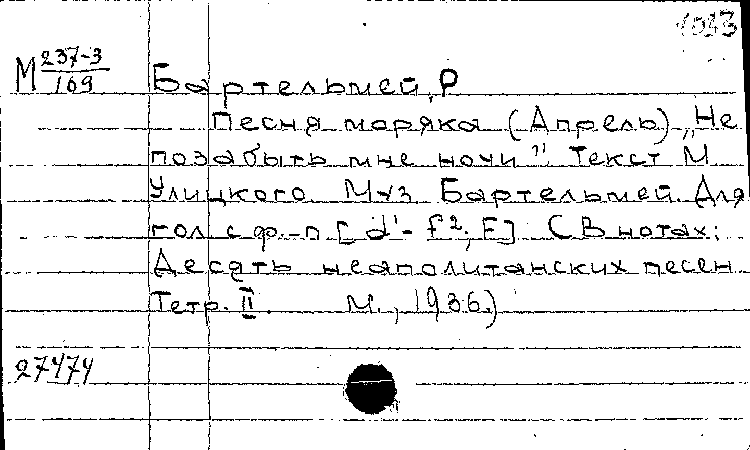 1033
М 237-3/109
Бартельмей, Р
Песня моряка (Апрель) „Не
позабыть мне ночи". Текст М
Улицкого. Муз Бартельмей. Для
гол с ф.-п. [d'- f², F] (В нотах:
Десять неаполитанских песен
Тетр. II. М., 1936.)
27474